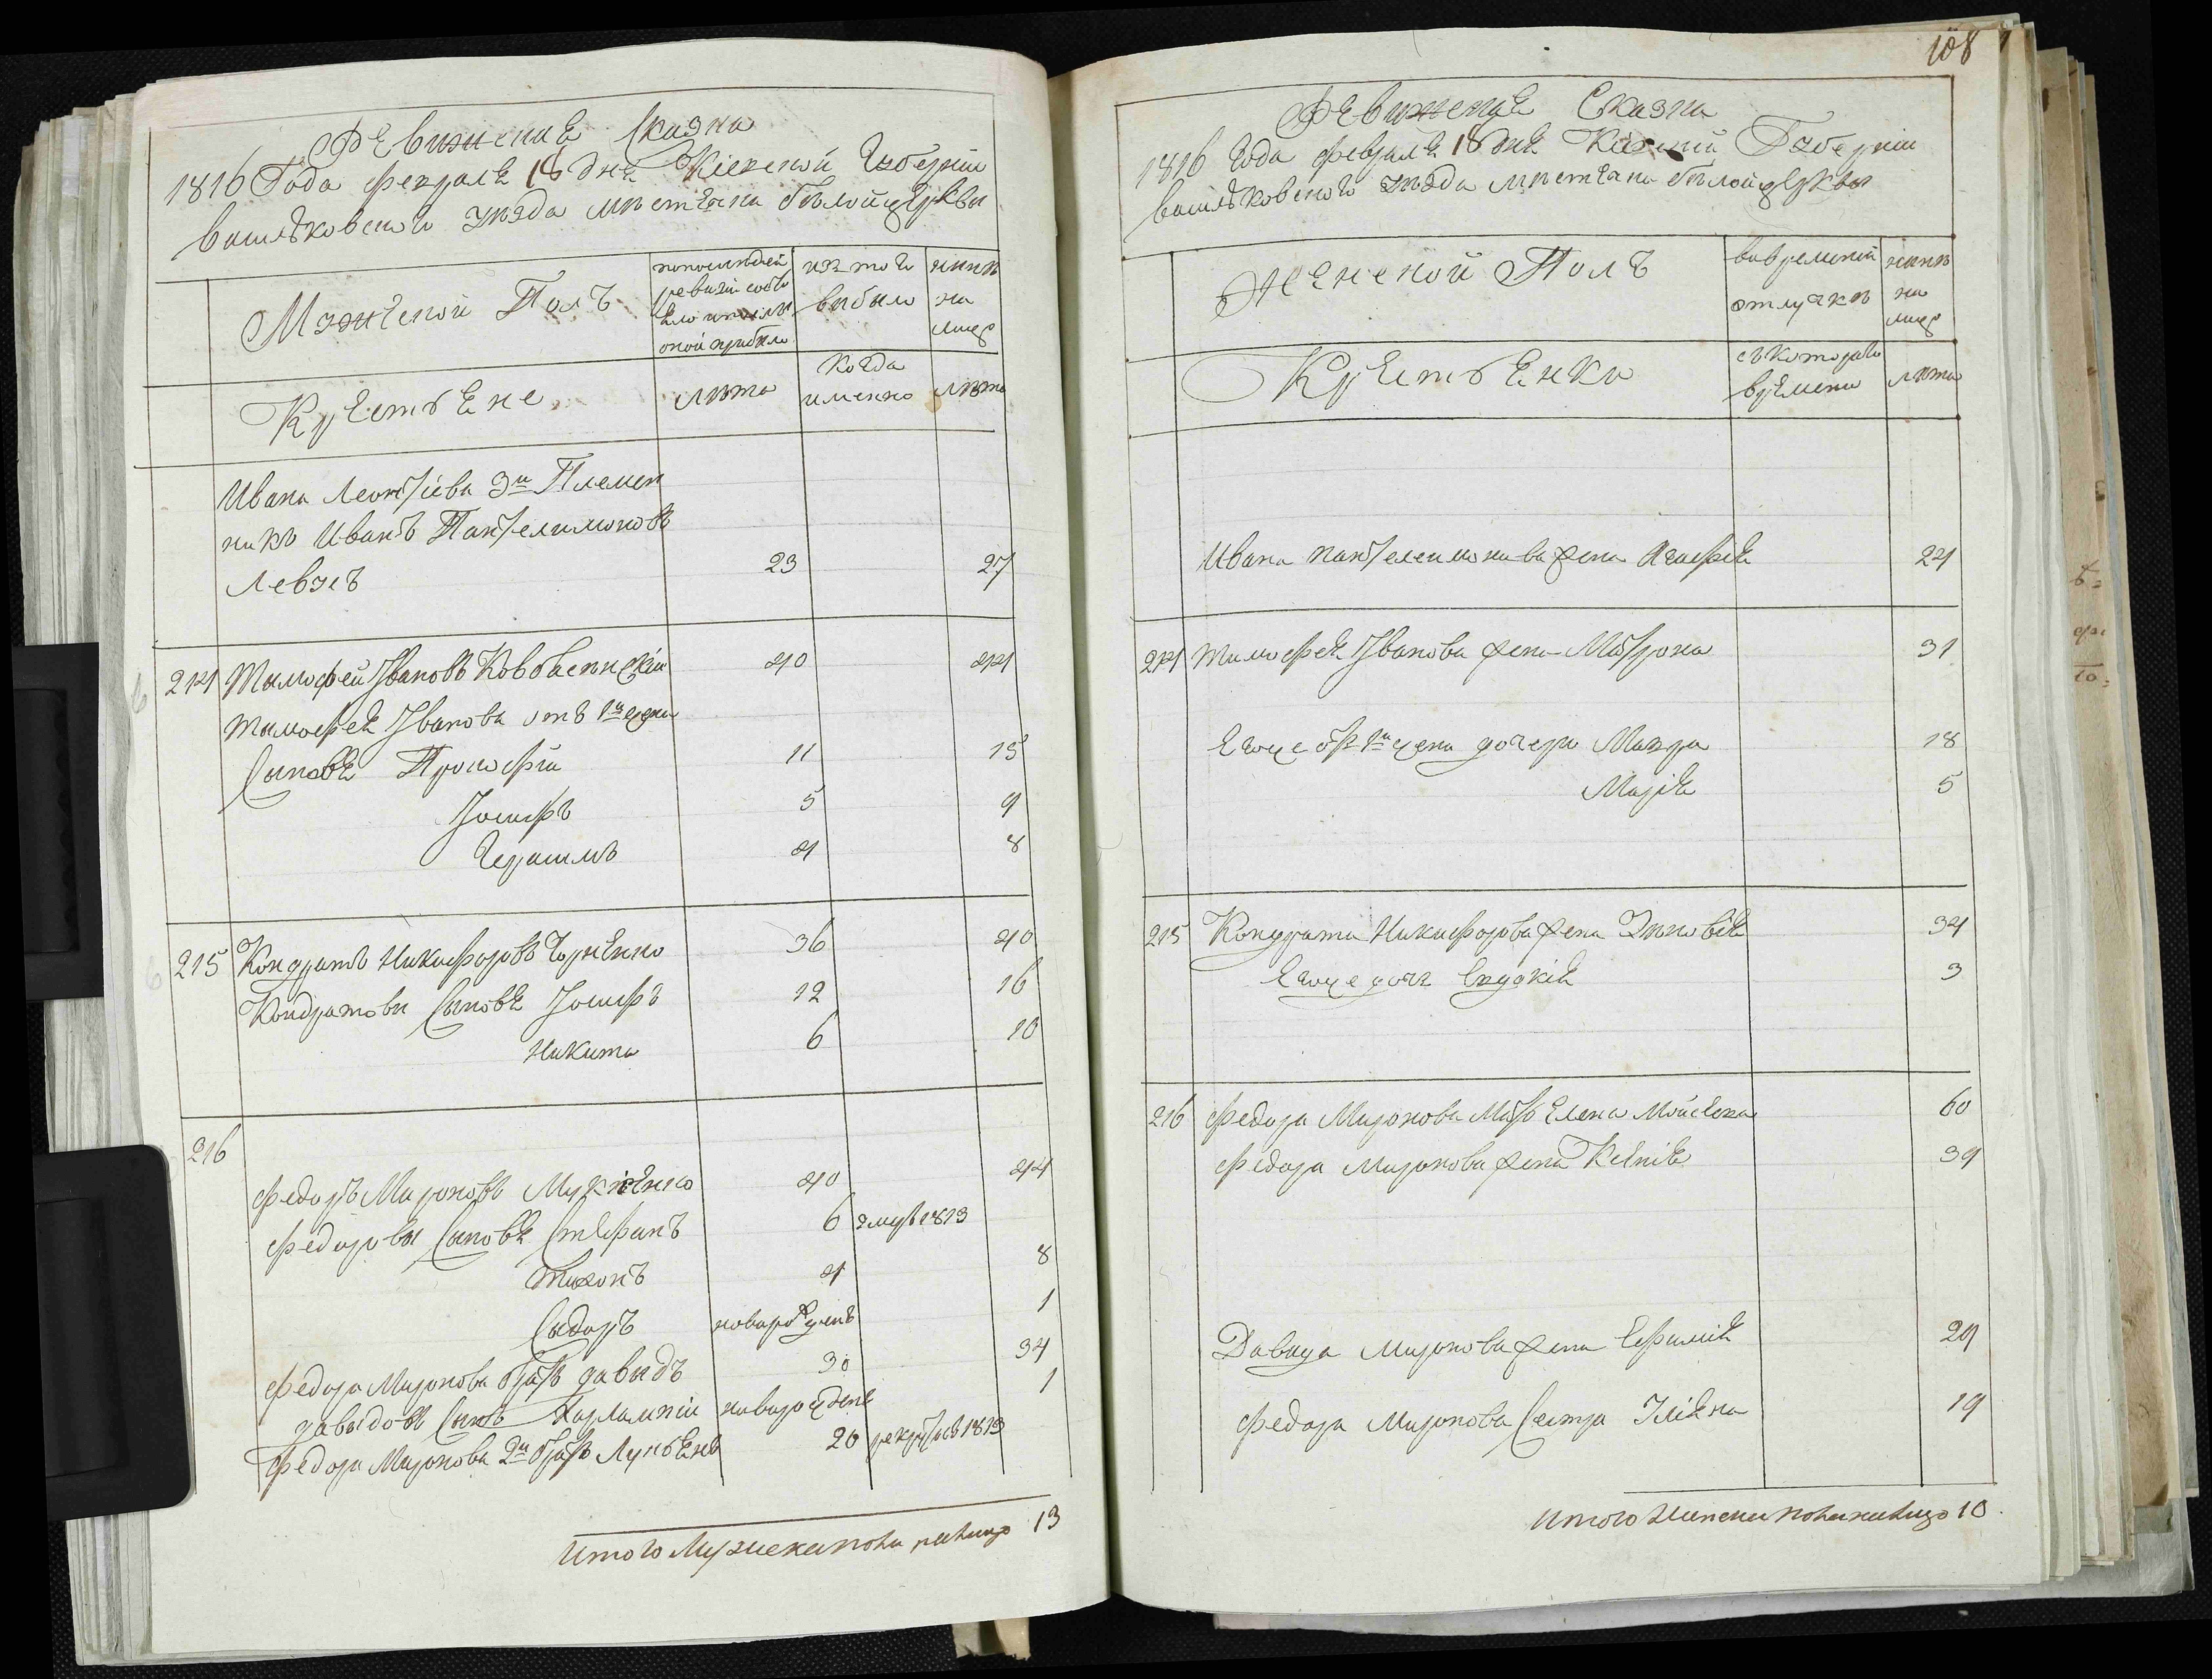 Ревижская Сказка
1816 Года февраля 18 дня Кіевской Губерніи
васильковского уезда мѣстечка белойцеркви
Мужеской Полъ
попоследней ревизіи состояло ипосле оной прибыло
изъ того выбыло
ныне на лицо
Крестьяне
лѣта
Когда именно
лѣта
Ивана Леонтіева 3й Племен
никъ Иванъ Пантелимоновъ
Левусъ 23 27
214 Тимофей Ивановъ 40 44
Тимофея Иванова отъ 1й жены
Сыновя Прокофій 11 15
Іосифъ 5 9
Герасимъ 4 8
215 Кондратъ Никифоровъ 36 40
Кондратовы Сыновя Іосифъ 12 16
Никита 6 10
216
Федоръ Мироновъ 40 44
Федоровы Сыновя Стефанъ 6 умръ 1813
Тихонъ 4 8
Сидоръ новорожденъ 1
Федора Миронова братъ давыдъ 30 34
давыдовъ Сынъ Харлампій новорожденъ 1
Федора Миронова 2й братъ Лукьянъ 20 рекрутъ 1813
Итого Мужеска пола налицо 13
108
Ревижская Сказка
1816 Года февраля 18 дня Кіевской Губерніи
васильковского уезда мѣстечка белойцеркви
Женской Полъ
вовременной отлучке
ныне на лицо
Крестьянки
съ которого времени
лѣта
Ивана пантелеимонова жена Агафія 24
214 Тимофея Иванова жена Матрона 31
Егоже отъ 1й жены дочери Мавра 18
Марія 5
215 Кондрата Никифорова жена Зиновія 34
Егоже дочь Евдокія 3
216 Федора Миронова Мать Елена Мойсеева 60
Федора Миронова жена Ксенія 39
Давида Миронова жена Ефимія 29
Федора Миронова Сестра Уліяна 19
Итого Женска пола налицо 10.